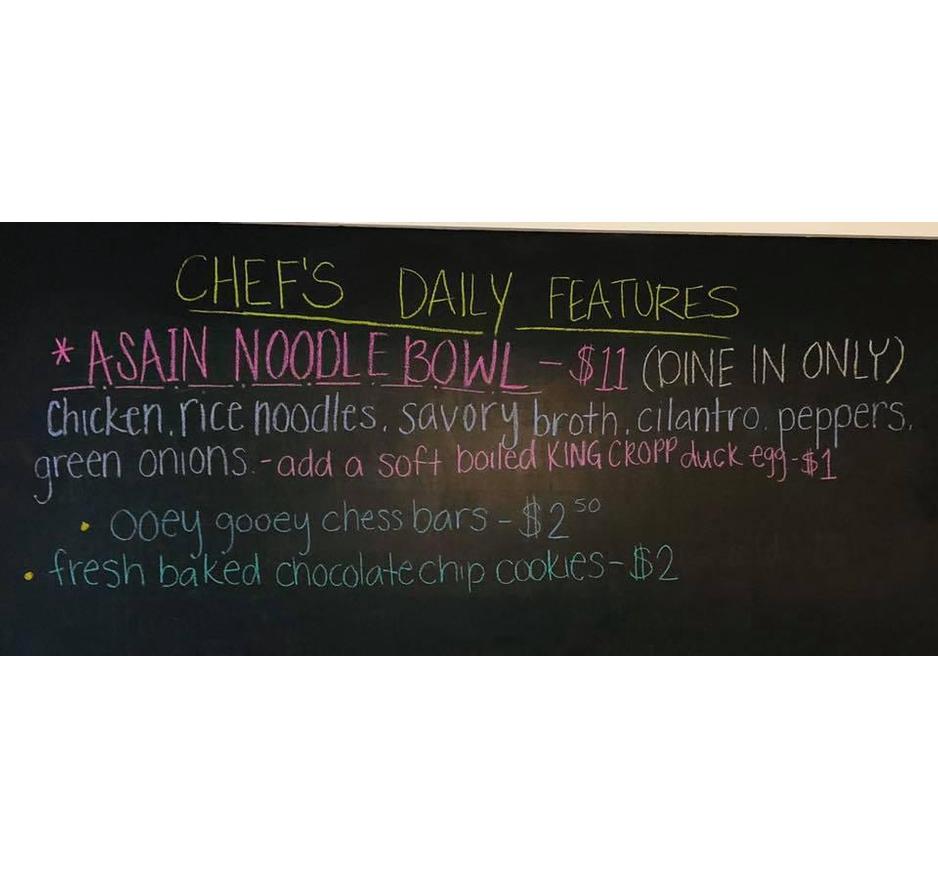 CHEF'S DAILY FEATURES
* ASAIN NOODLE BOWL - $11 (DINE IN ONLY)
Chicken, rice noodles, savory broth, cilantro, peppers,
green onions. - add a soft boiled KING CROPP duck egg - $1
• ooey gooey chess bars - $2⁵⁰
• fresh baked chocolate chip cookies - $2